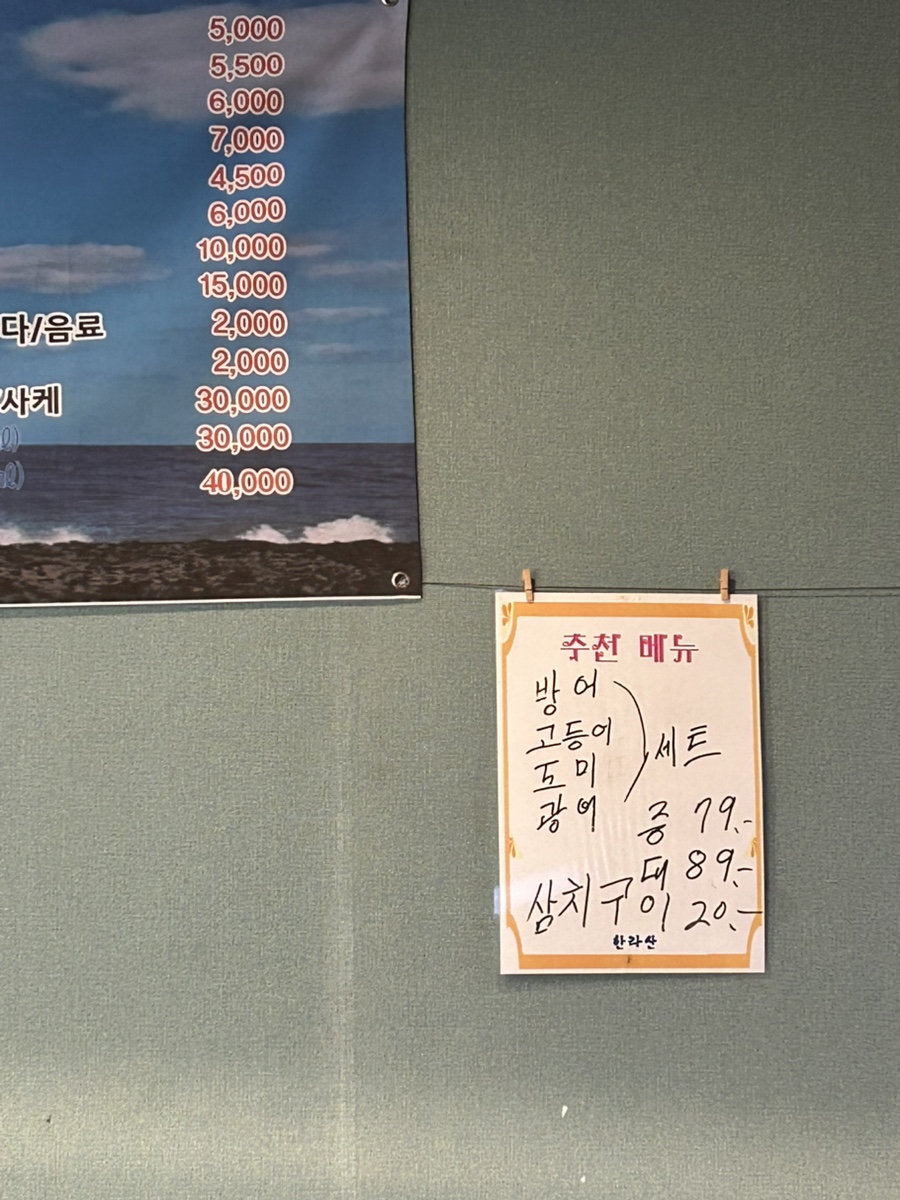 5,000
5,500
6,000
7,000
4,500
6,000
10,000
15,000
다/음료 2,000
2,000
사케 30,000
30,000
40,000
추천 메뉴
방어
고등어
세트
도미
광어
중 79.-
대 89.-
삼치구이 20.-
한라산